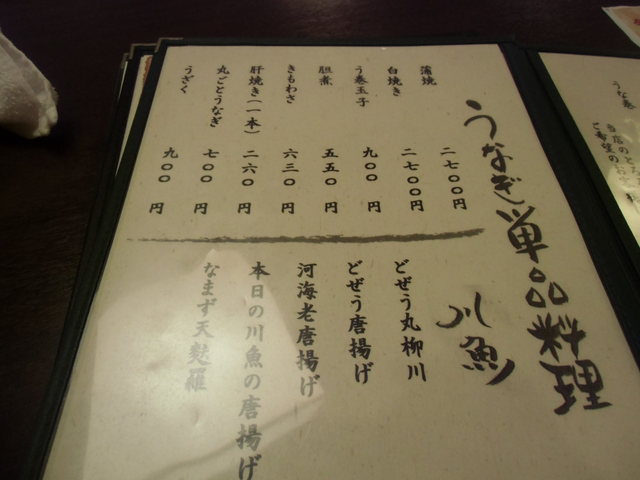 うなぎ単品料理
蒲焼 二七〇〇円
白焼き 二七〇〇円
う巻玉子 九〇〇円
胆煮 五五〇円
きもわさ 六三〇円
肝焼き(一本) 二六〇円
丸ごとうなぎ 七〇〇円
うざく 九〇〇円
川魚
どぜう丸柳川
どぜう唐揚げ
河海老唐揚げ
本日の川魚の唐揚げ
なまず天麩羅
うな巻
当店のとろ
ご希望のお